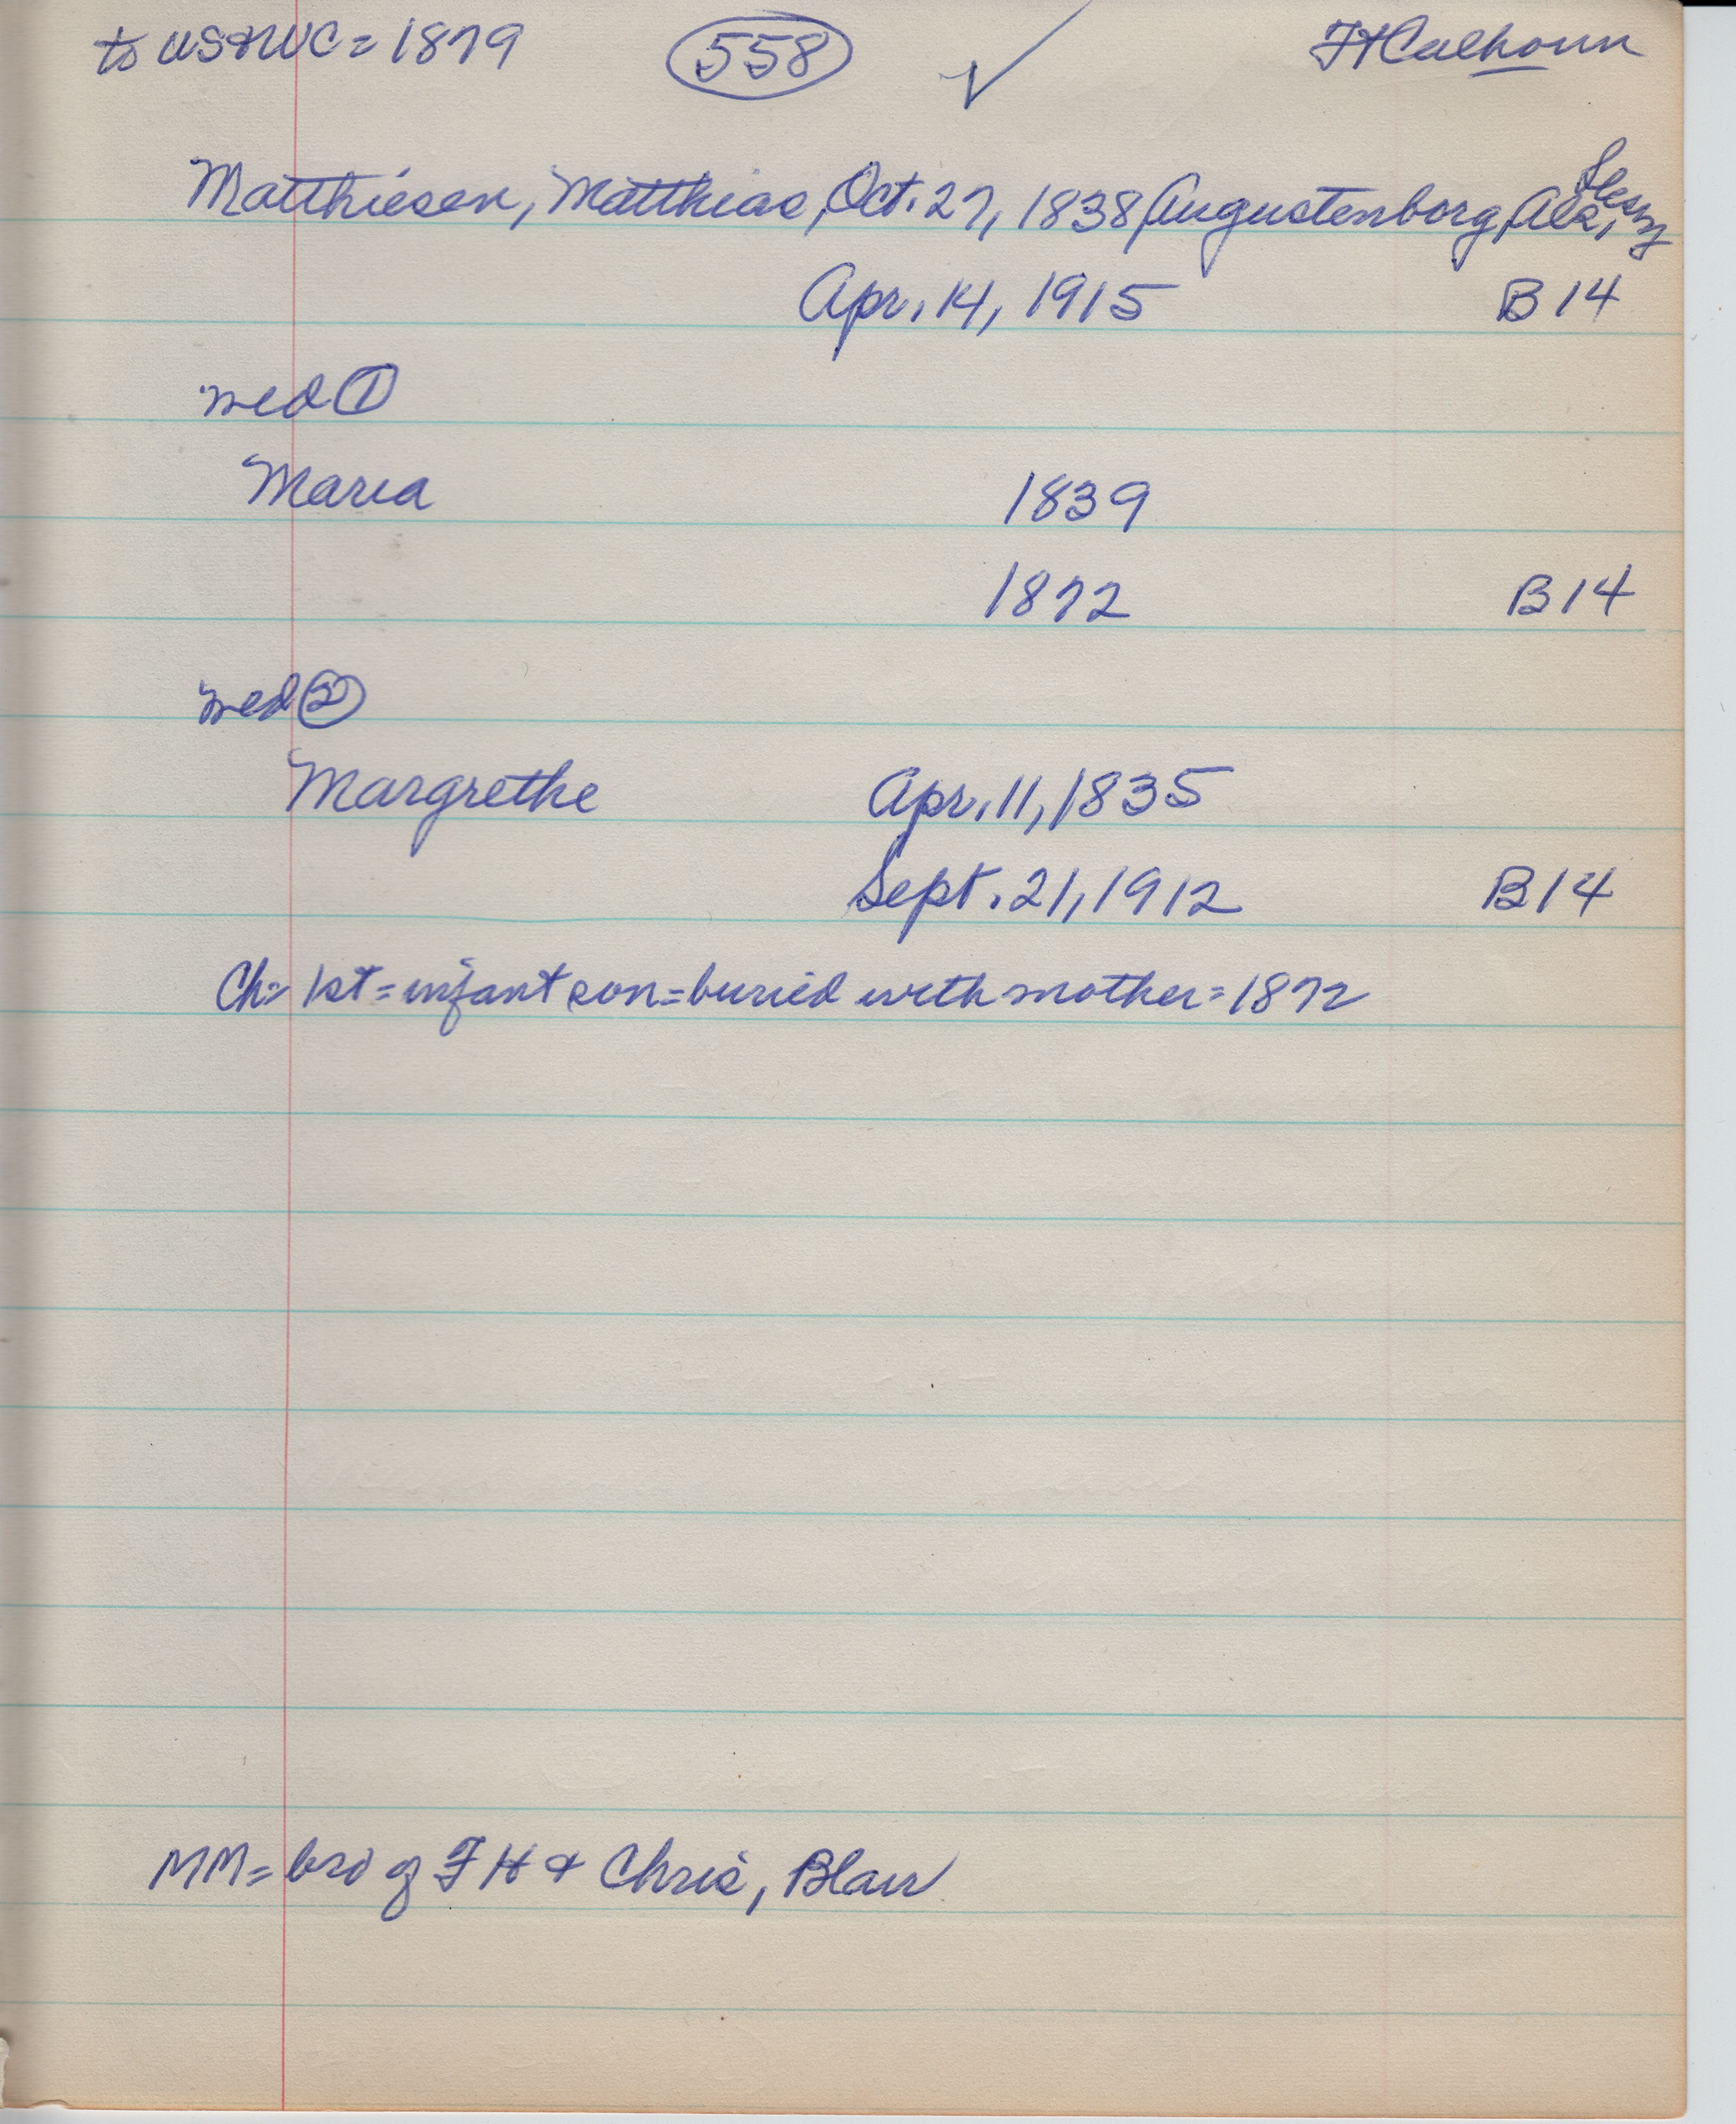 to US & WC = 1879 558 ✓ Ft Calhoun
Matthiesen, Matthias, Oct. 27, 1838, Augustenborg, Als, Slesvg
Apr. 14, 1915 B 14
med ①
Maria 1839
1872 B 14
med ②
Margrethe Apr. 11, 1835
Sept. 21, 1912 B 14
Ch = 1st = infant son = buried with mother = 1872
MM = bro of F H & Chris, Blair